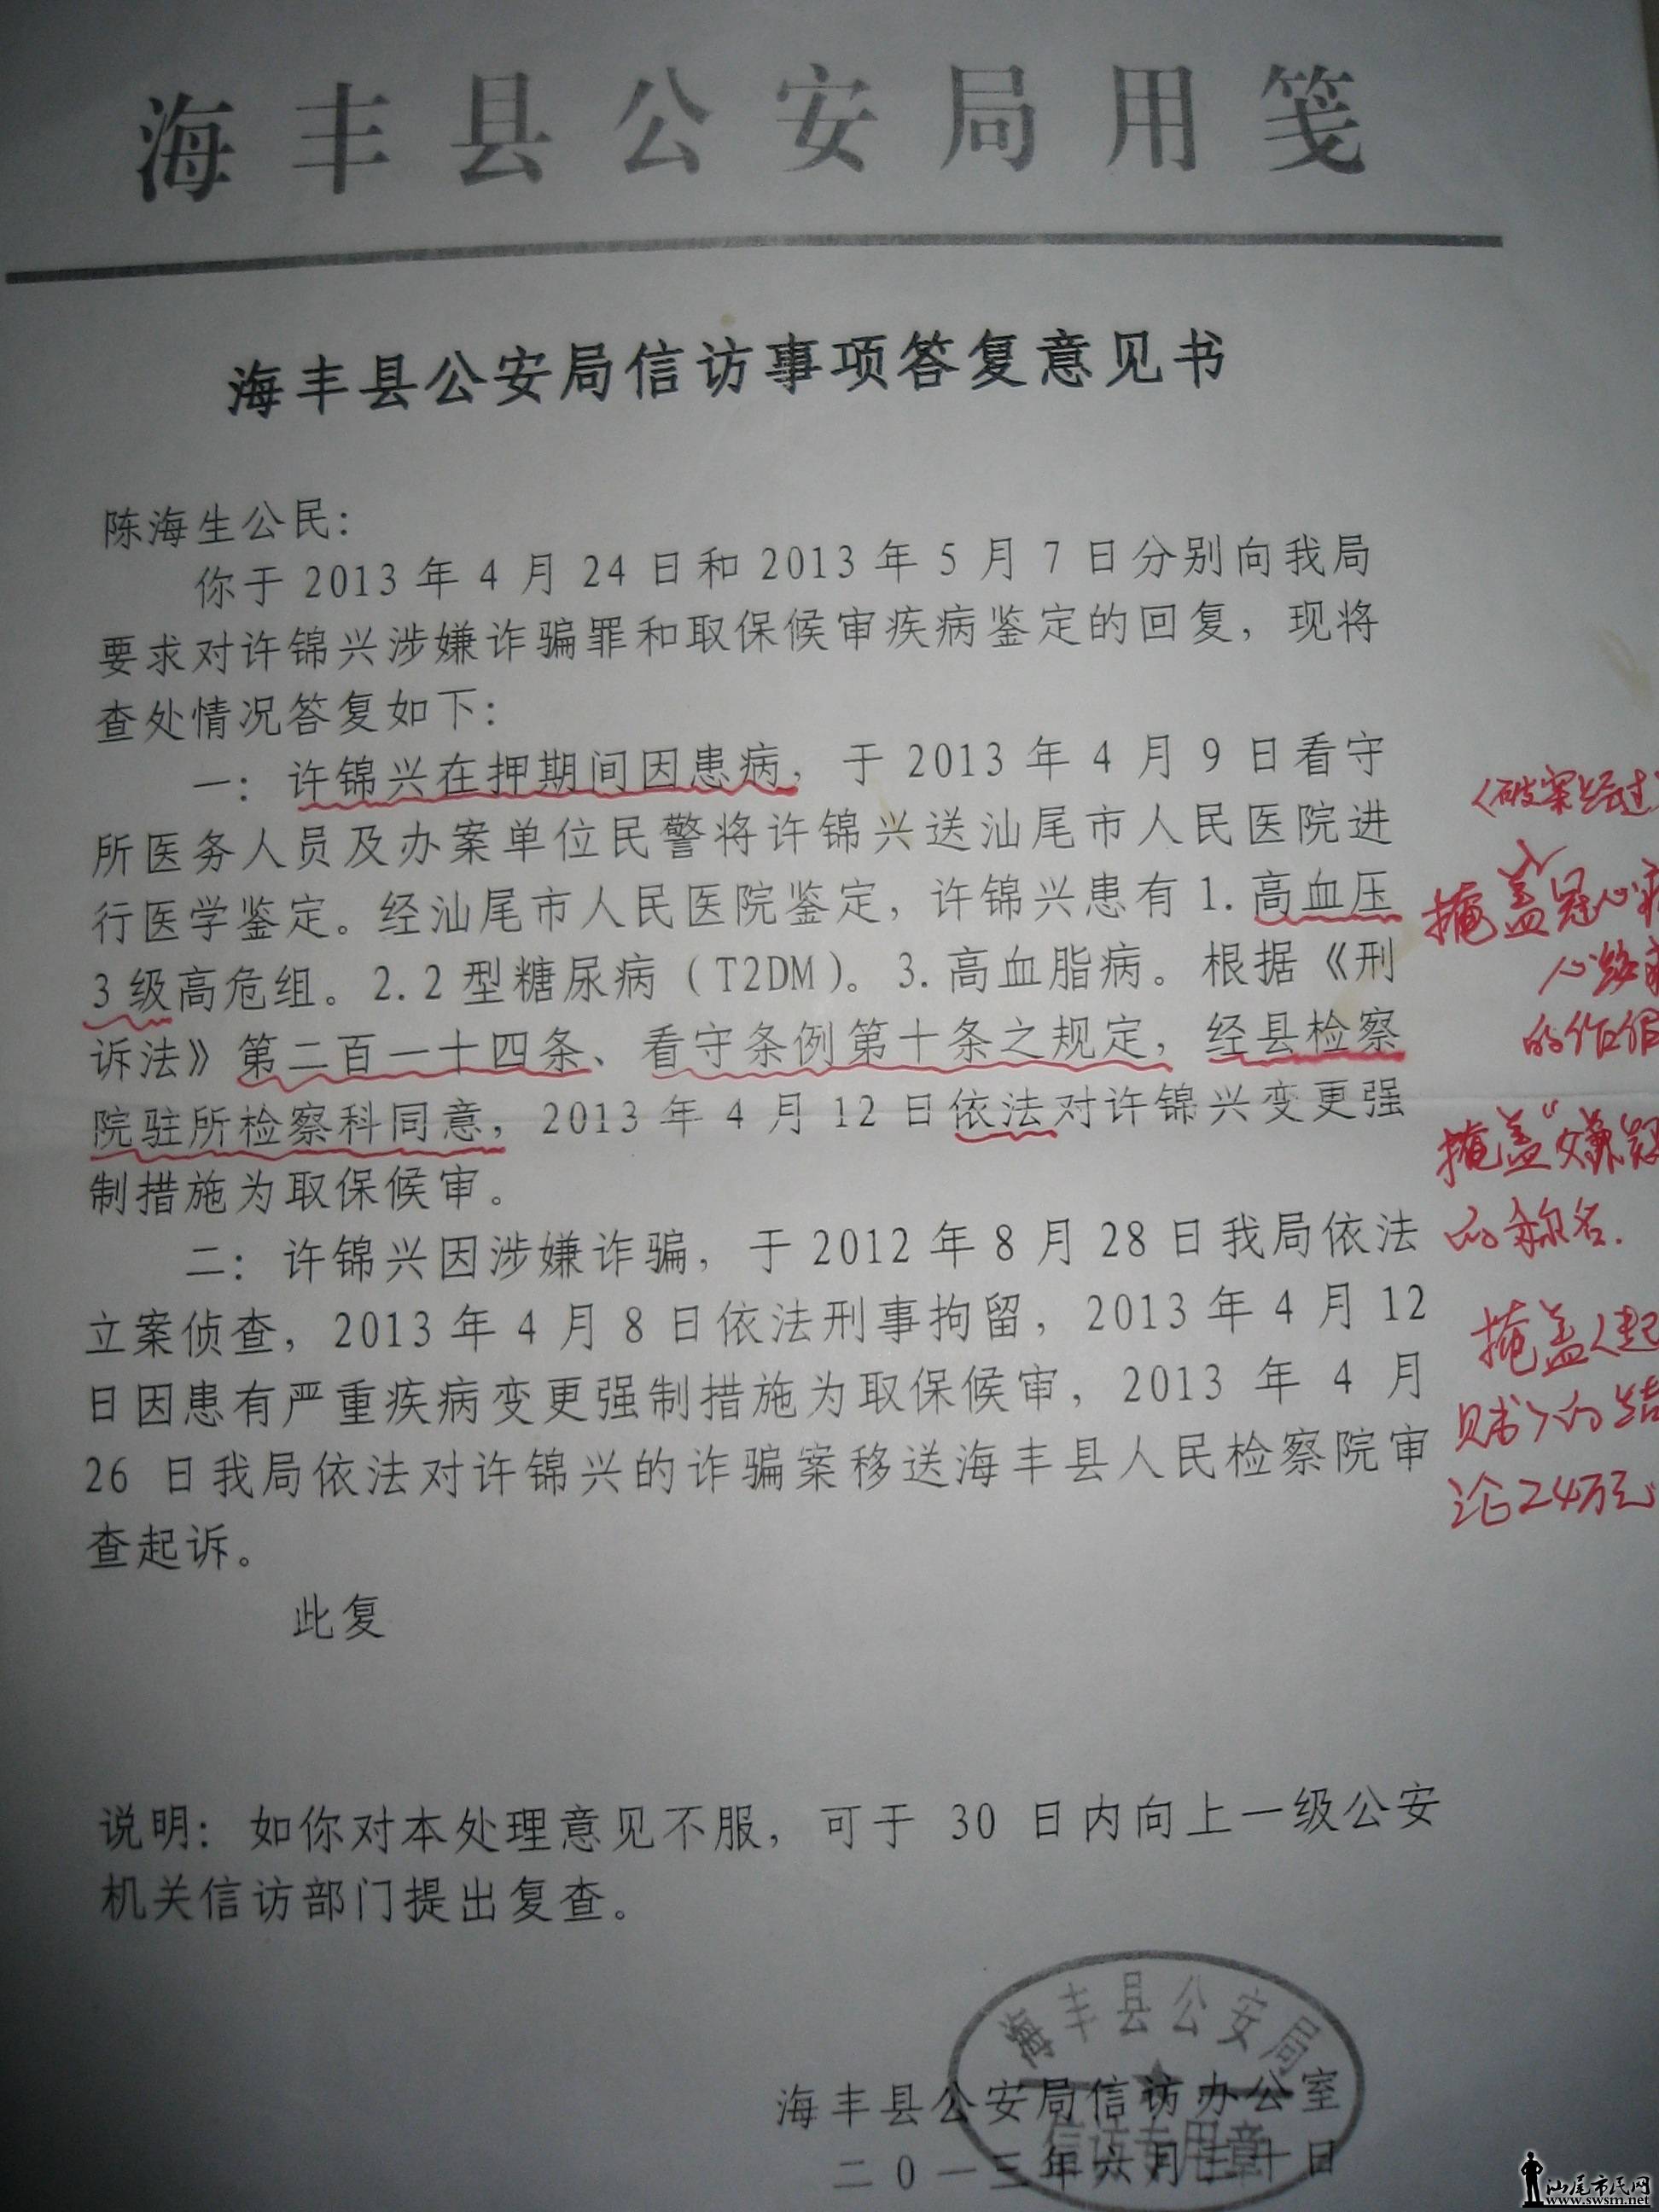 海丰县公安局用笺
海丰县公安局信访事项答复意见书
陈海生公民：
你于2013年4月24日和2013年5月7日分别向我局
要求对许锦兴涉嫌诈骗罪和取保候审疾病鉴定的回复，现将
查处情况答复如下：
一：许锦兴在押期间因患病，于2013年4月9日看守
所医务人员及办案单位民警将许锦兴送汕尾市人民医院进
行医学鉴定。经汕尾市人民医院鉴定，许锦兴患有1.高血压
3级高危组。2.2型糖尿病（T2DM）。3.高血脂病。根据《刑
诉法》第二百一十四条、看守条例第十条之规定，经县检察
院驻所检察科同意，2013年4月12日依法对许锦兴变更强
制措施为取保候审。
二：许锦兴因涉嫌诈骗，于2012年8月28日我局依法
立案侦查，2013年4月8日依法刑事拘留，2013年4月12
日因患有严重疾病变更强制措施为取保候审，2013年4月
26日我局依法对许锦兴的诈骗案移送海丰县人民检察院审
查起诉。
此复
说明：如你对本处理意见不服，可于30日内向上一级公安
机关信访部门提出复查。
海丰县公安局信访办公室
二0一三年六月二十日
海丰县公安局
信访专用章
〈破案经过
掩盖冠心病
的作假
掩盖"嫌疑
的称名.
掩盖〈起
赃书〉的结
论24万元
汕尾市民网
www.swsm.net